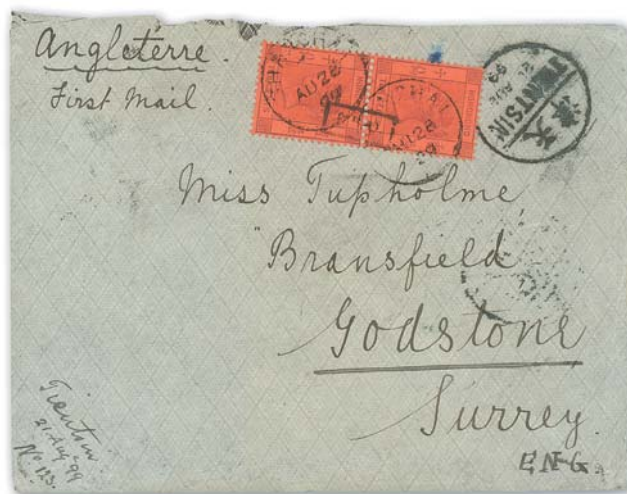 Angleterre.
First Mail.
SHANGHAI
AU 28
99
AU 28
99
天津
TIENTSIN
AUG
99
Miss Tupholme,
"Bransfield
Godstone
Surrey.
ENG.
Tientsin
21 Aug 99
No 123.